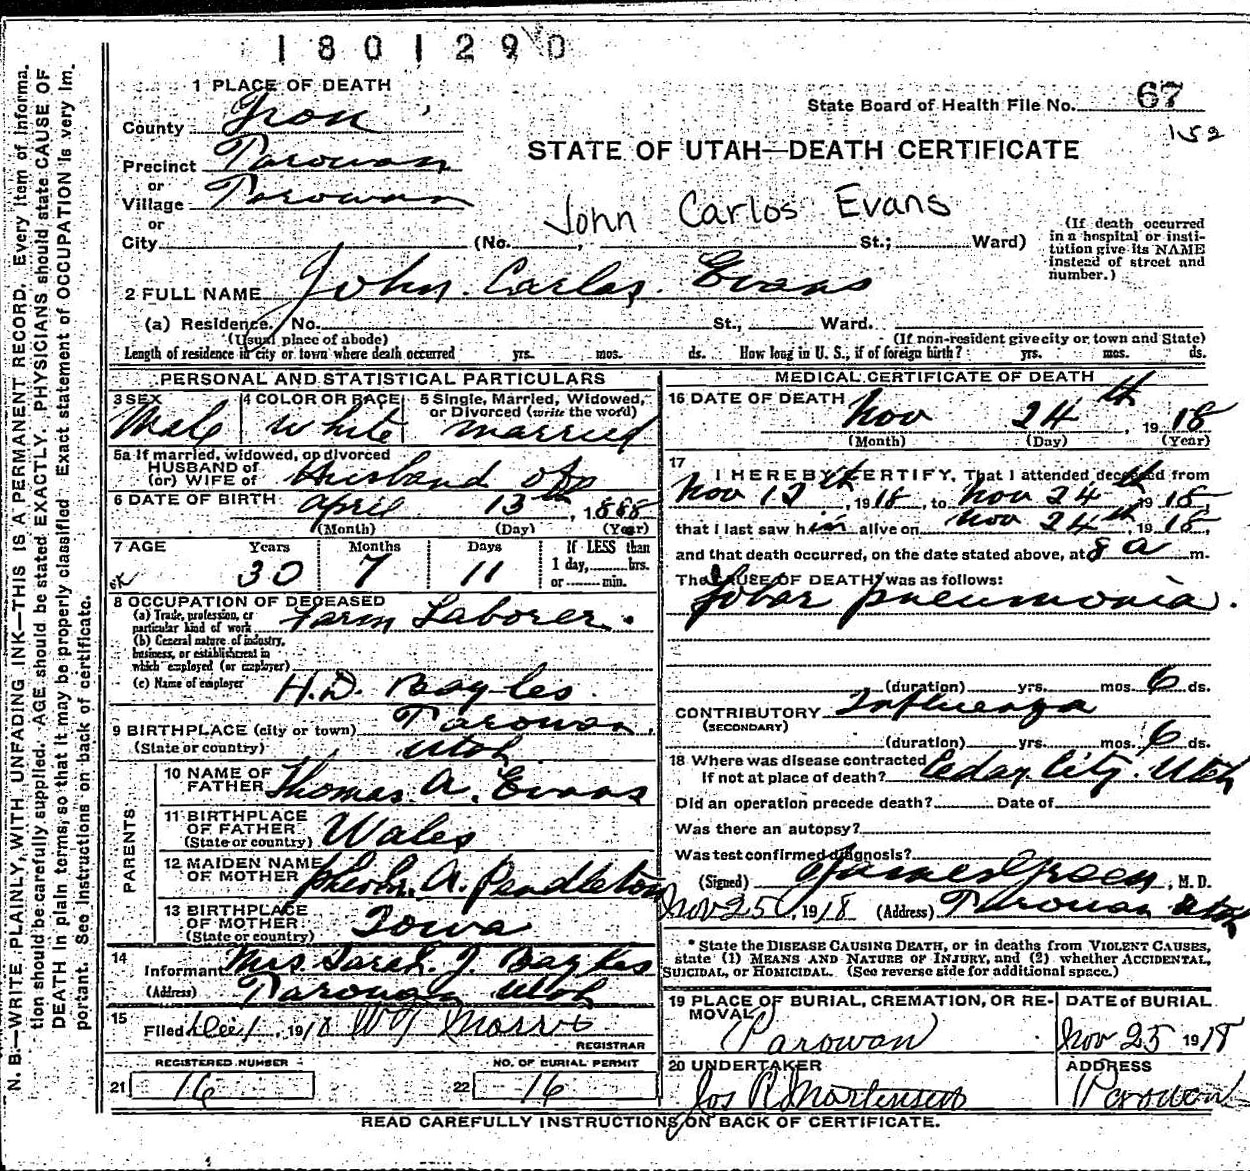 1801290
1 PLACE OF DEATH
State Board of Health File No. 67
152
County Iron
STATE OF UTAH—DEATH CERTIFICATE
Precinct Parowan
or
Village Parowan
or
John Carlos Evans
City (No. , St.; Ward)
(If death occurred in a hospital or insti-
tution give its NAME
instead of street and
number.)
2 FULL NAME John Carlos Evans
(a) Residence. No. St., Ward.
(Usual place of abode) (If non-resident give city or town and State)
Length of residence in city or town where death occurred yrs. mos. ds. How long in U. S., if of foreign birth? yrs. mos. ds.
PERSONAL AND STATISTICAL PARTICULARS
3 SEX 4 COLOR OR RACE 5 Single, Married, Widowed,
or Divorced (write the word)
Male White married
5a If married, widowed, or divorced
HUSBAND of
(or) WIFE of Husband of
6 DATE OF BIRTH April 13th, 1888
(Month) (Day) (Year)
7 AGE Years Months Days If LESS than
1 day, hrs.
or min.
30 7 11
8 OCCUPATION OF DECEASED
(a) Trade, profession, or
particular kind of work Farm Laborer.
(b) General nature of industry,
business, or establishment in
which employed (or employer)
(c) Name of employer H.D. Bayles.
9 BIRTHPLACE (city or town) Parowan,
(State or country) Utah
PARENTS
10 NAME OF
FATHER Thomas A. Evans
11 BIRTHPLACE
OF FATHER
(State or country) Wales
12 MAIDEN NAME
OF MOTHER A. Pendleton
13 BIRTHPLACE
OF MOTHER
(State or country) Iowa
14
Informant Mrs Sarah J. Bayles
(Address) Parowan Utah
15
Filed Dec 1, 1918 Morris
REGISTRAR
REGISTERED NUMBER NO. OF BURIAL PERMIT
21 16 22 16
MEDICAL CERTIFICATE OF DEATH
16 DATE OF DEATH Nov 24th, 1918
(Month) (Day) (Year)
17
I HEREBY CERTIFY, That I attended deceased from
Nov 12th, 1918, to Nov 24th 1918,
that I last saw him alive on Nov 24th, 1918,
and that death occurred, on the date stated above, at 8 a m.
The CAUSE OF DEATH* was as follows:
Lobar pneumonia.
(duration) yrs. mos. 6 ds.
CONTRIBUTORY Influenza
(SECONDARY)
(duration) yrs. mos. 6 ds.
18 Where was disease contracted
if not at place of death? Cedar City. Utah
Did an operation precede death? Date of
Was there an autopsy?
Was test confirmed diagnosis?
(Signed) James Green, M. D.
Nov 25, 1918 (Address) Parowan Utah
* State the DISEASE CAUSING DEATH, or in deaths from VIOLENT CAUSES,
state (1) MEANS AND NATURE OF INJURY, and (2) whether ACCIDENTAL,
SUICIDAL, or HOMICIDAL. (See reverse side for additional space.)
19 PLACE OF BURIAL, CREMATION, OR RE-
MOVAL
Parowan
DATE of BURIAL
Nov 25 1918
20 UNDERTAKER
Jos R Mortensen
ADDRESS
Parowan
READ CAREFULLY INSTRUCTIONS ON BACK OF CERTIFICATE.
N. B.—WRITE PLAINLY, WITH UNFADING INK—THIS IS A PERMANENT RECORD. Every item of informa-
tion should be carefully supplied. AGE should be stated EXACTLY. PHYSICIANS should state CAUSE OF
DEATH in plain terms, so that it may be properly classified. Exact statement of OCCUPATION is very im-
portant. See instructions on back of certificate.